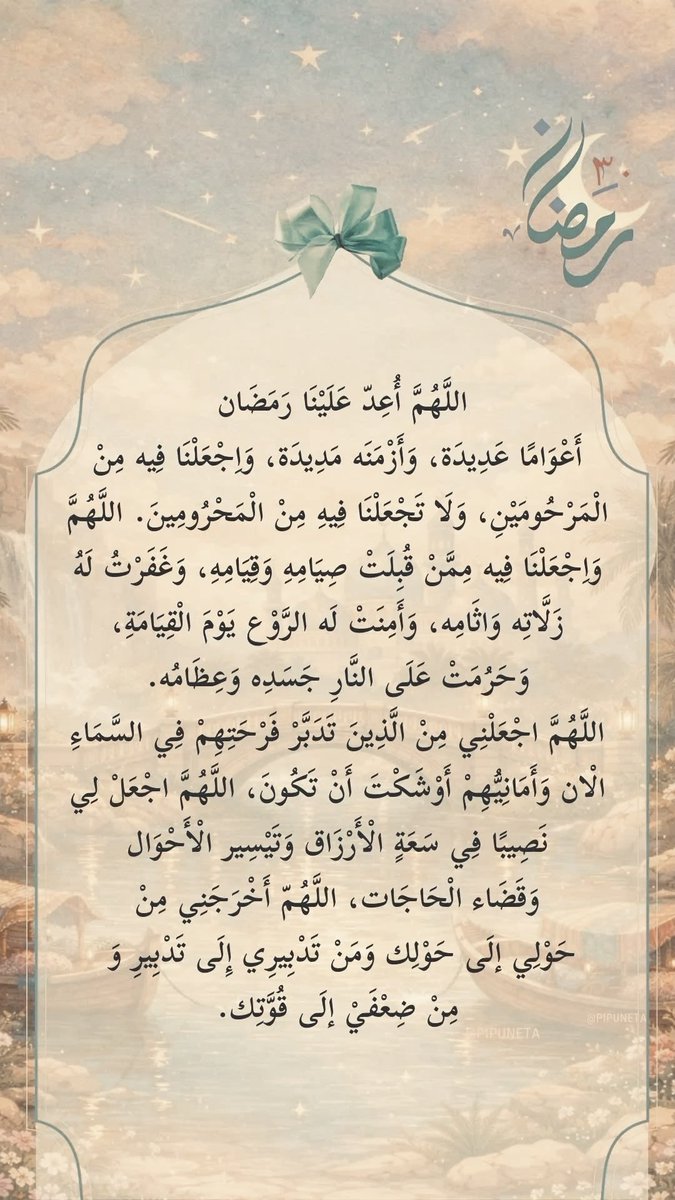 رمضان
٣٠
اللَّهُمَّ أُعِدّ عَلَيْنَا رَمَضَان
أَعْوَامًا عَدِيدَة، وَأَزْمَنَه مَدِيدَة، وَاِجْعَلْنَا فِيه مِنْ
الْمَرْحُومَيْنِ، وَلَا تَجْعَلْنَا فِيهِ مِنْ الْمَحْرُومِينَ. اللَّهُمَّ
وَاِجْعَلْنَا فِيه مِمَّنْ قُبِلَتْ صِيَامِهِ وَقِيَامِهِ، وَغَفَرْتُ لَهُ
زَلَّاتِه وَاثَامِه، وَأَمِنَتْ لَه الرَّوْع يَوْمَ الْقِيَامَةِ،
وَحَرُمَتْ عَلَى النَّارِ جَسَدِه وَعِظَامُه.
اللَّهُمَّ اجْعَلْنِي مِنْ الَّذِينَ تَدَبَّرْ فَرْحَتِهِمْ فِي السَّمَاءِ
الْان وَأَمَانِيُّهِمْ أَوْشَكْتَ أَنْ تَكُونَ، اللَّهُمَّ اجْعَلْ لِي
نَصِيبًا فِي سَعَةٍ الْأَرْزَاق وَتَيْسِير الْأَحْوَال
وَقَضَاء الْحَاجَات، اللَّهُمّ أَخْرَجَنِي مِنْ
حَوْلِي إلَى حَوْلِك وَمَنْ تَدْبِيرِي إِلَى تَدْبِيرِ وَ
مِنْ ضِعْفَيْ إلَى قُوَّتِك.
@PIPUNETA
@PIPUNETA